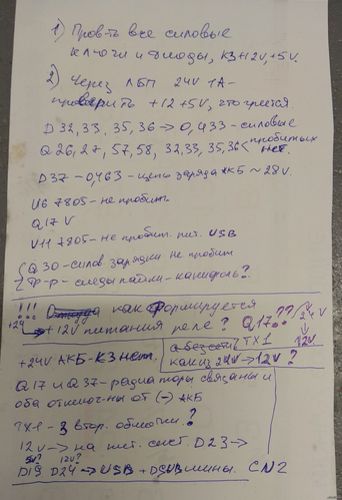 1) Проверить все силовые
ключи и диоды, КЗ +12v, +5v.
2) Через ЛБП 24V 1А-
проверить +12+5V, что греется
D32,33, 35,36 → 0,433 - силовые
Q26,27, 57,58, 32,33, 35,36 < пробитых нет.
D37 - 0,463 - цепь заряда АКБ ~ 28v.
U6 7805 - не пробит.
Q17 V
U11 7805 - не пробит. пит. USB
Q30 - силов. зарядки не пробит
Тр-р - следы пайки - канифоль?
!!! как формируется
+24v → +12V питания реле? Q17??
24V
12V
+24V АКБ - КЗ нет.
TX1
как из 24V → 12V?
Q17 и Q37 - радиаторы связаны и
оба отключены от (-) АКБ
TX-1 - 3 втор. обмотки?
12V → на пит. сист. D23 →
5V? 12V?
D19 D24 → USB + DSUB шины. CN2